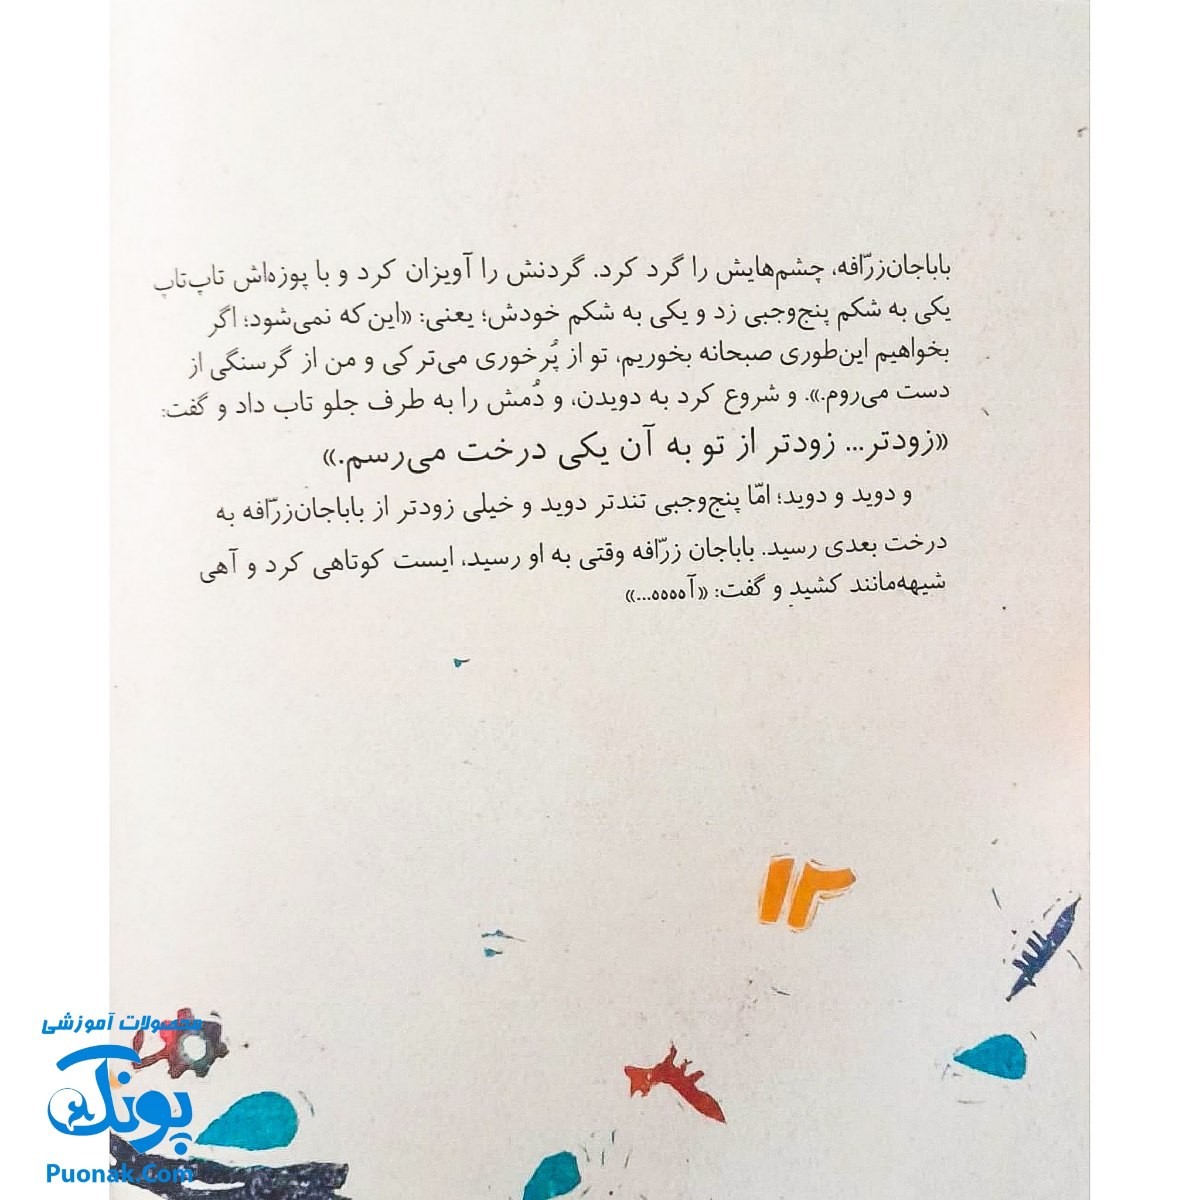 باباجان‌زرّافه، چشم‌هایش را گرد کرد. گردنش را آویزان کرد و با پوزه‌اش تاپ‌تاپ
یکی به شکم پنج‌وجبی زد و یکی به شکم خودش؛ یعنی: «این‌که نمی‌شود؛ اگر
بخواهیم این‌طوری صبحانه بخوریم، تو از پُرخوری می‌ترکی و من از گرسنگی از
دست می‌روم.». و شروع کرد به دویدن، و دُمش را به طرف جلو تاب داد و گفت:
«زودتر... زودتر از تو به آن یکی درخت می‌رسم.»
و دوید و دوید؛ امّا پنج‌وجبی تندتر دوید و خیلی زودتر از باباجان‌زرّافه به
درخت بعدی رسید. باباجان زرّافه وقتی به او رسید، ایست کوتاهی کرد و آهی
شیهه‌مانند کشید و گفت: «آه‌ه‌ه‌ه...»
۱۲
محصولات آموزشی
پونک
Puonak.Com